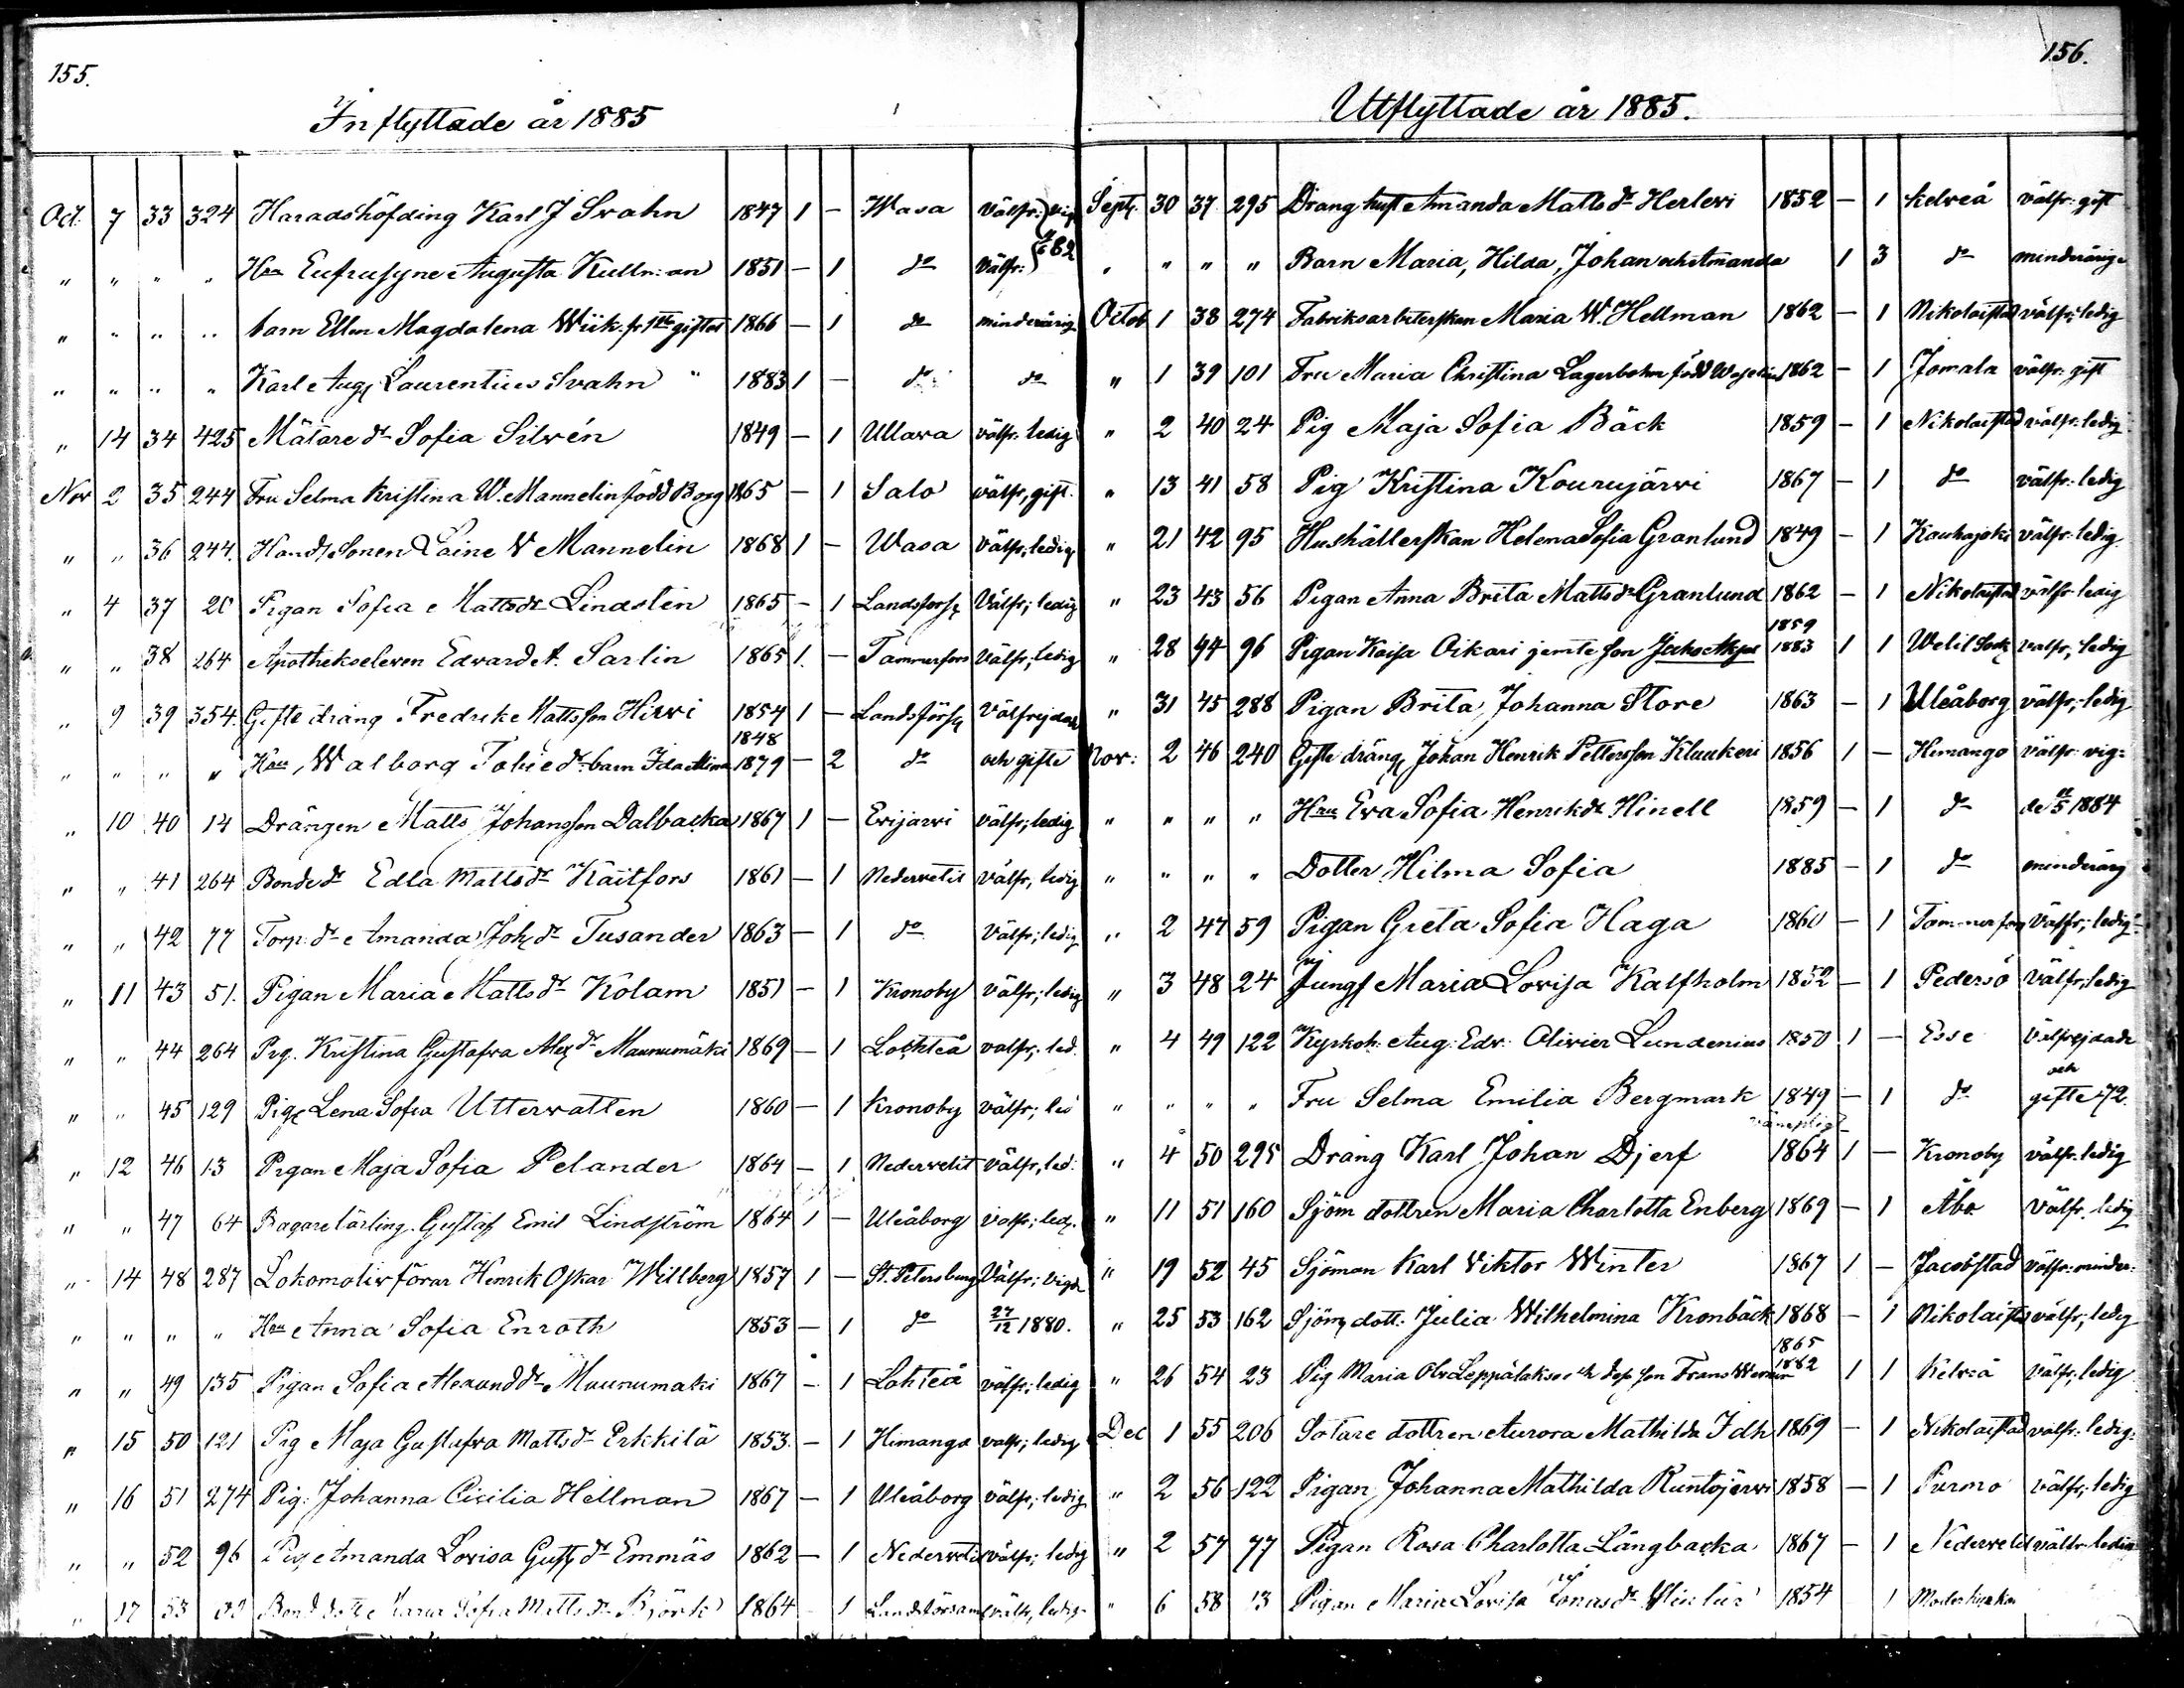 155.
Inflyttade år 1885
Oct. 7 33 324 Häradshöfding Karl J Svahn 1847 1 - Wasa välfr: vig
" " " " Hu Eufrusyne Augusta Kullman 1851 - 1 do välfr: 82
" " " " barn Ellen Magdalena Wiik fr 1sta giftet 1866 - 1 do minderårig
" " " " Karl Aug Laurentius Svahn " 1883 1 - do do
" 14 34 425 Mätare dr Sofia Silvén 1849 - 1 Ullava välfr: ledig
Nov 2 35 244 Fru Selma Kristina W. Mannelin född Borg 1865 - 1 Salo välfr, gift.
" " 36 244. Handl Sonen Laine W Mannelin 1868 1 - Wasa välfr; ledig
" 4 37 20 Pigan Sofia Mattsdr Lindsten 1865 - 1 Landsförs Välfr; ledig
" " 38 264 Apothekseleven Edvard A. Sarlin 1865 1. - Tammerfors Välfr; ledig
" 9 39 354. Gifte dräng Fredrik Mattsson Hirvi 1854 1 - Landsförs Välfrejdade
1848
" " " " Hu Walborg barn Ida 1879 - 2 do och gifte
" 10 40 14 Drängen Matts Johansson Dalbacka 1867 1 - Evijärvi välfr; ledig
" " 41 264 Bonde dr Edla Mattsdr Kaitfors 1861 - 1 Nedervetil välfr, ledig
" " 42 77 Torp. dr Amanda Joh dr Tusander 1863 - 1 do Välfr; ledig
" 11 43 51. Pigan Maria Mattsdr Kôlam 1851 - 1 Kronoby Välfr; ledig
" " 44 264 Pig. Kristina Gustafva Alex dr Maunumäki 1869 - 1 Lochteå välfr; led.
" " 45 129 Pig Lena Sofia Uttervatten 1860 - 1 Kronoby välfr; led
" 12 46 13 Pigan Maja Sofia Pelander 1864 - 1 Nedervetil välfr, led:
" " 47 64 Bagarelärling Gustaf Emil Lindström 1864 1 - Uleåborg välfr; led.
" 14 48 287 Lokomotivförar Henrik Oskar Willberg 1857 1 - St. Petersburg Välfr; Vigde
" " " " Hu Anna Sofia Enroth 1853 - 1 do 27/12 1880.
" " 49 135 Pigan Sofia Alexanddr Maunumäki 1867 - 1 Lohteå välfr; ledig
" 15 50 121 Pig Maja Gustafva Mattsdr Erkkilä 1853. - 1 Himango välfr; ledig
" 16 51 274 Pig. Johanna Cicilia Hellman 1867 - 1 Uleåborg välfr; ledig
" " 52 96 Pig Amanda Lovisa Gust dr Emmäs 1862 - 1 Nedervetil välfr; ledig
" 17 53 Bond dott Maria Sofia Matts dr Björk 1864 1 Landsförsaml välfr, ledig
156.
Utflyttade år 1885.
Sept. 30 37 295 Dräng hust Amanda Matts dr Herlevi 1852 - 1 Kelveå välfr: gift
" " " " Barn Maria, Hilda, Johan och Amanda 1 3 do minderårige
Octob 1 38 274 Fabriksarbeterskan Maria W. Hellman 1862 - 1 Nikolaistad välfr; ledig
" 1 39 101 Fru Maria Christina Lagerbohm född 1862 - 1 Jomala välfr: gift
" 2 40 24 Pig Maja Sofia Bäck 1859 - 1 Nikolaistad välfr: ledig
" 13 41 58 Pig Kristina Kourujärvi 1867 - 1 do välfr: ledig
" 21 42 95 Hushållerskan Helena Sofia Granlund 1849 - 1 Kauhajoki välfr: ledig.
" 23 43 56 Pigan Anna Brita Mattsdr Granlund 1862 - 1 Nikolaistad välfr ledig
1859
" 28 44 96 Pigan Kaisa Oikari jemte son 1883 1 1 Wetil Sock välfr; ledig
" 31 45 288 Pigan Brita Johanna Store 1863 - 1 Uleåborg välfr; ledig
Nov: 2 46 240 Gifte dräng Johan Henrik Pettersson Kluukeri 1856 1 - Himango välfr: vig=
" " " " Hu Eva Sofia Henrikdr Hinell 1859 - 1 do de 5 1884
" " " " Dotter Hilma Sofia 1885 - 1 do minderårig
" 2 47 59 Pigan Greta Sofia Haga 1860 - 1 Tammerfors Välfr; ledig
" 3 48 24 Jungf Maria Lovisa Kalfholm 1852 - 1 Pedersö Välfr; ledig
" 4 49 122 Kyrkoh. Aug. Edv. Olivier Lundenius 1850 1 - Esse Välfrejdade
och
" " " " Fru Selma Emilia Bergmark 1849 - 1 do gifte 72.
" 4 50 295 Dräng Karl Johan Djerf 1864 1 - Kronoby välfr. ledig
" 11 51 160 Sjöm dottren Maria Charlotta Enberg 1869 - 1 Åbo Välfr. ledig
" 19 52 45 Sjöman Karl Viktor Winter 1867 1 - Jacobstad välfr: minder:
" 25 53 162 Sjöm dott. Julia Wilhelmina Kronbäck 1868 - 1 Nikolaistad välfr; ledig
1865
" 26 54 23 Pig Maria Leppälakso son Frans 1882 1 1 Kelveå Välfr; ledig
Dec 1 55 206 Sotare dottren Aurora Mathilda Idh 1869 - 1 Nikolaistad välfr: ledig:
" 2 56 122 Pigan Johanna Mathilda Runtojärvi 1858 - 1 Purmo välfr; ledig
" 2 57 77 Pigan Rosa Charlotta Långbacka 1867 - 1 Nedervetil välfr. ledig
" 6 58 13 Pigan Maria Lovisa Jonasdr 1854 1 Moderkyrkan